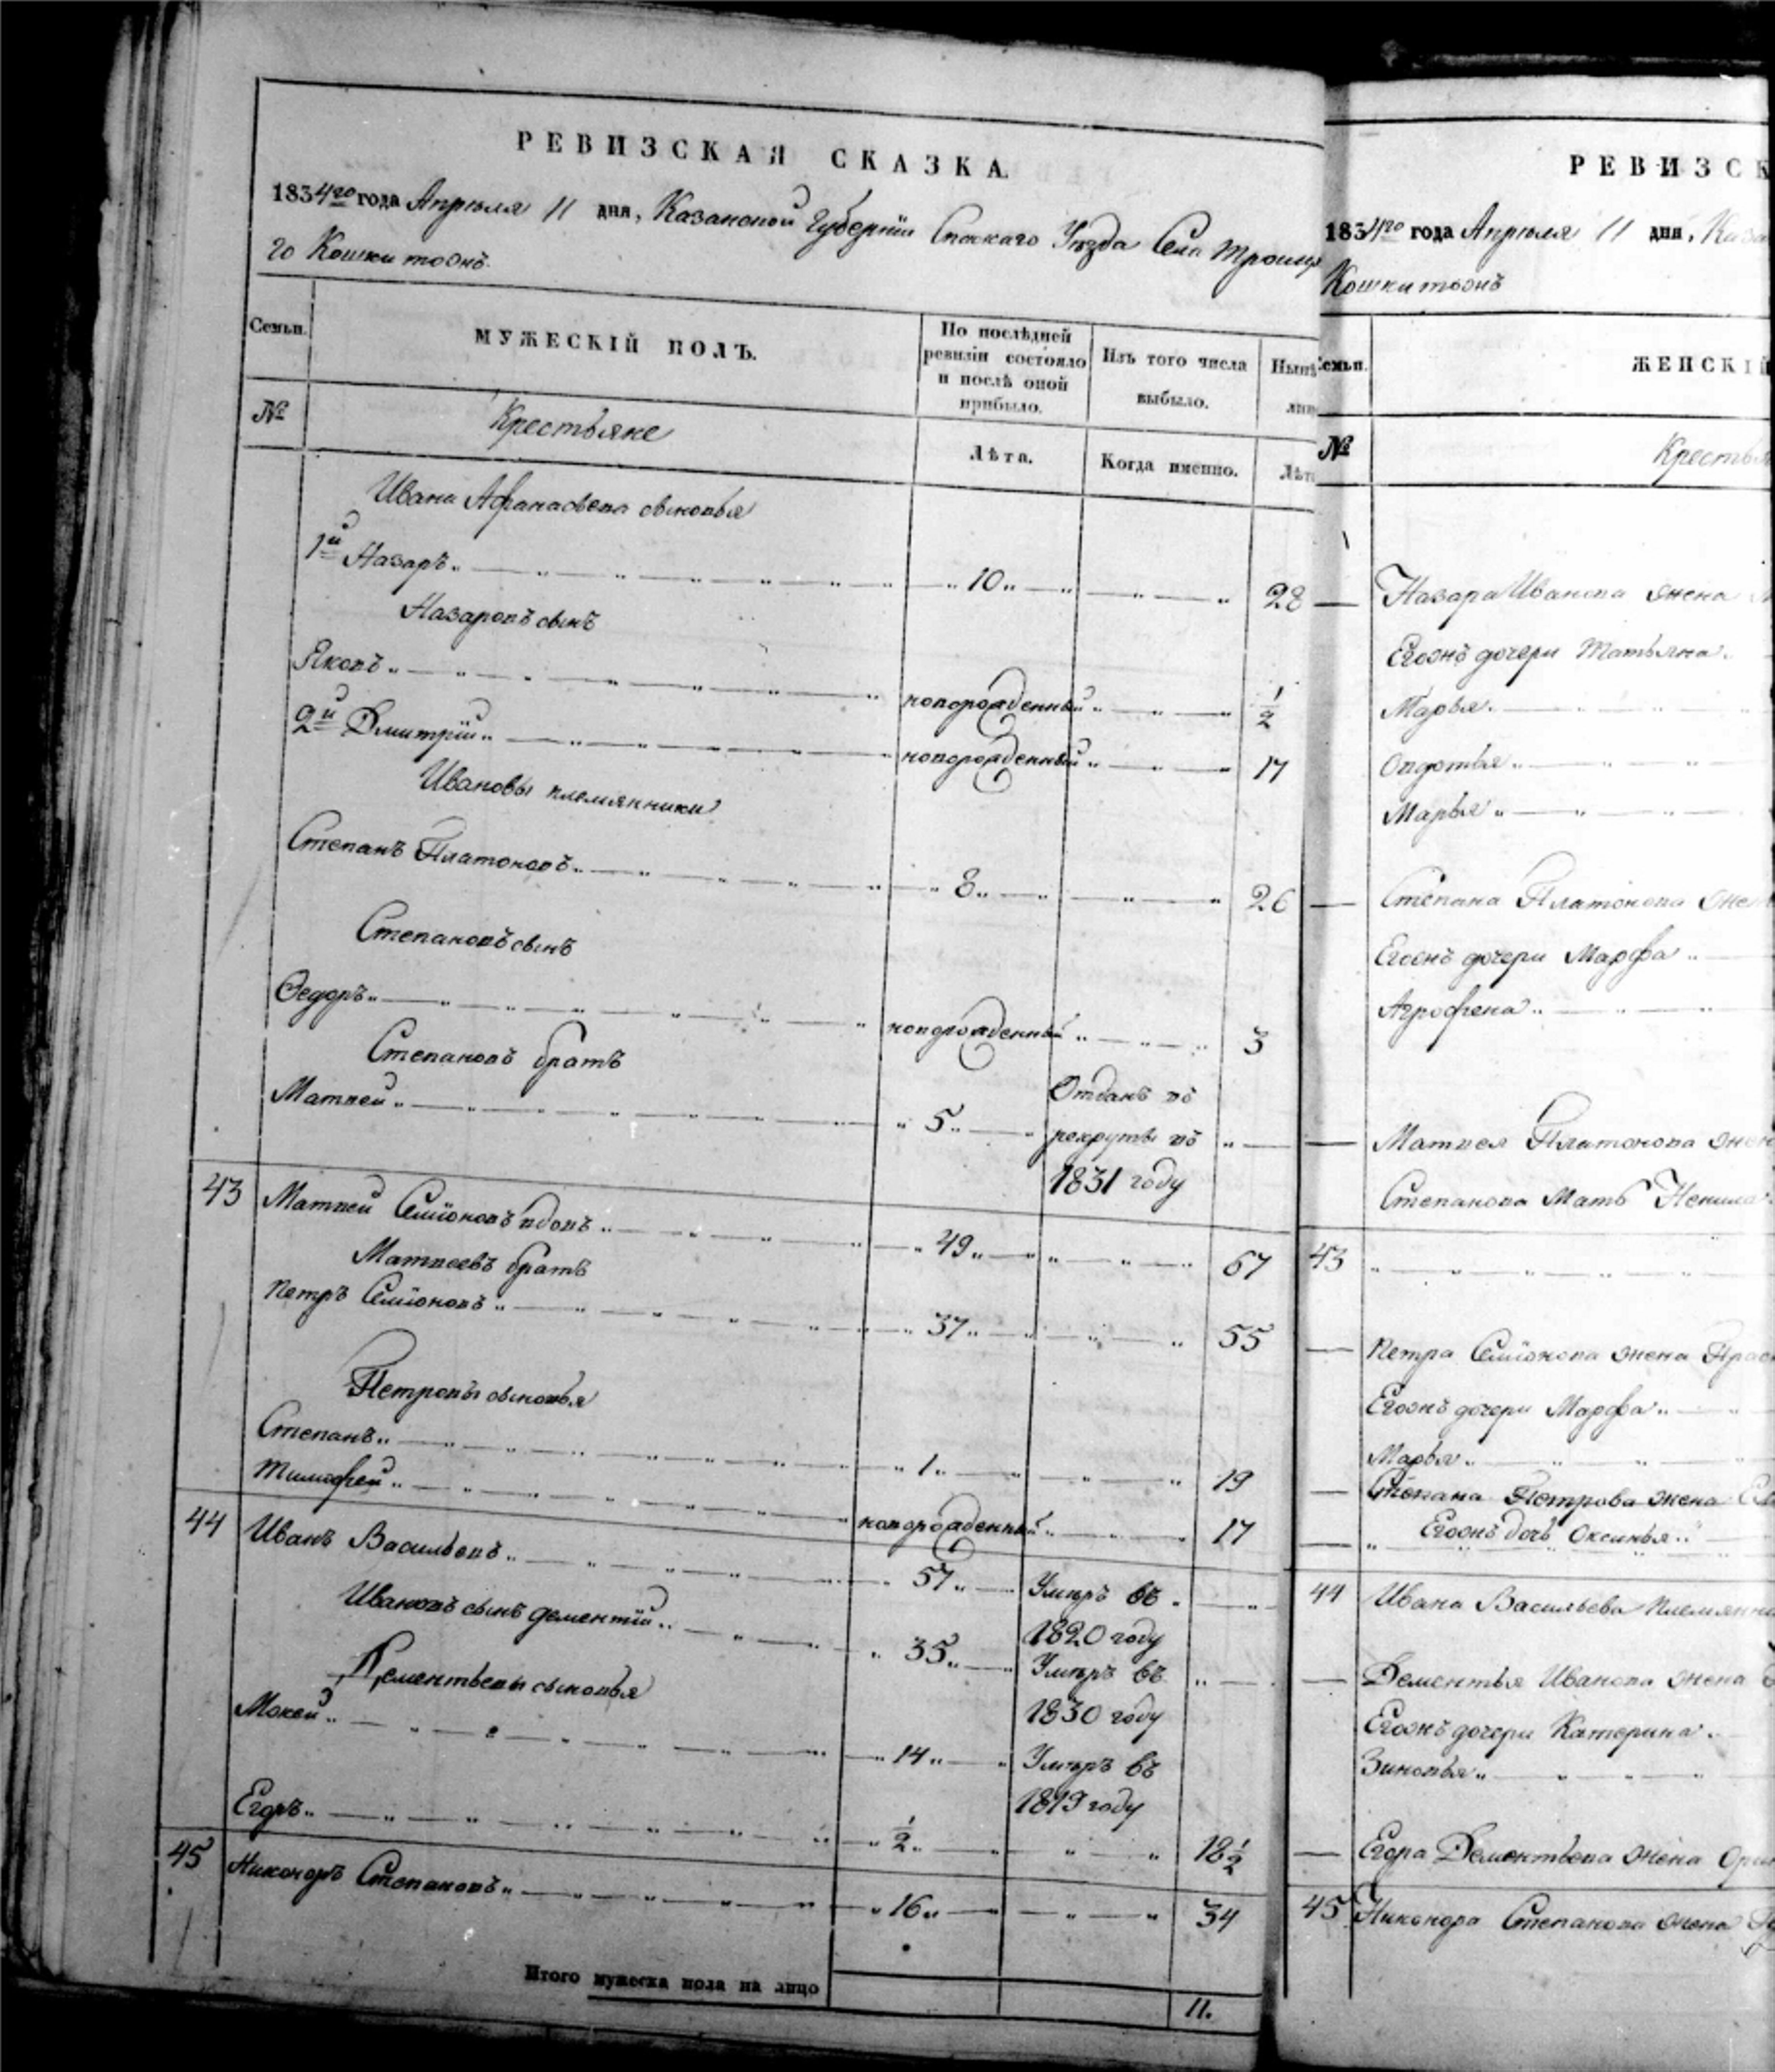 РЕВИЗСКАЯ СКАЗКА.
1834го года Апреля 11 дня, Казанской Губернiи Спаскаго Уезда Села Троицка
го Кошки тожъ.
Семьи.
МУЖЕСКIЙ ПОЛЪ.
По послѣдней ревизiи состояло и послѣ оной прибыло.
Изъ того числа выбыло.
Нынѣ
лиц
№
Крестьяне
Лѣта.
Когда именно.
Лѣт
Ивана Афанасьева сыновья
1й Назаръ 10 28
Назаровъ сынъ
Яковъ новорожденный 1/2
2й Дмитрiй новорожденный 17
Ивановы племянники
Степанъ Платоновъ 8 26
Степановъ сынъ
Ѳедоръ новорожденный 3
Степановъ братъ
Матвей 5 Отданъ въ
рекруты въ
1831 году
43 Матвей Семiоновъ вдовъ 49 67
Матвеевъ братъ
Петръ Семiоновъ 37 55
Петровы сыновья
Степанъ 1 19
Тимофей новорожденный 17
44 Иванъ Васильевъ 57 Умеръ въ
1820 году
Ивановъ сынъ Дементiй 35 Умеръ въ
1830 году
Дементьевы сыновья
Мокей 14 Умеръ въ
1819 году
Егоръ 1/2 18 1/2
45 Никоноръ Степановъ 16 34
Итого мужеска пола на лицо 11.
РЕВИЗСК
1834го года Апреля 11 дня, Каза
Кошки тожъ
Семьи.
ЖЕНСКIЙ
№
Крестья
Назара Иванова жена
Егожъ дочери Татьяна
Марья
Овдотья
Марья
Степана Платонова жен
Егожъ дочери Марфа
Агрофена
Матвея Платонова жен
Степанова Мать Ненила
43
Петра Семiонова жена Прас
Егожъ дочери Марфа
Марья
Степана Петрова жена
Егожъ дочь Оксинья
44 Ивана Васильева племянни
Дементья Иванова жена
Егожъ дочери Катерина
Зиновья
Егора Дементьева жена Ори
45 Никонора Степанова жена